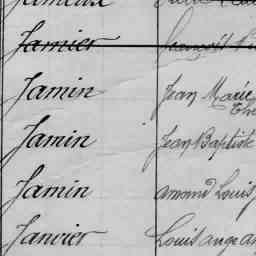 Jamier
Jamin Jean Marie
Jamin Jean Baptiste
Jamin Amand Louis
Janvier Louis ange